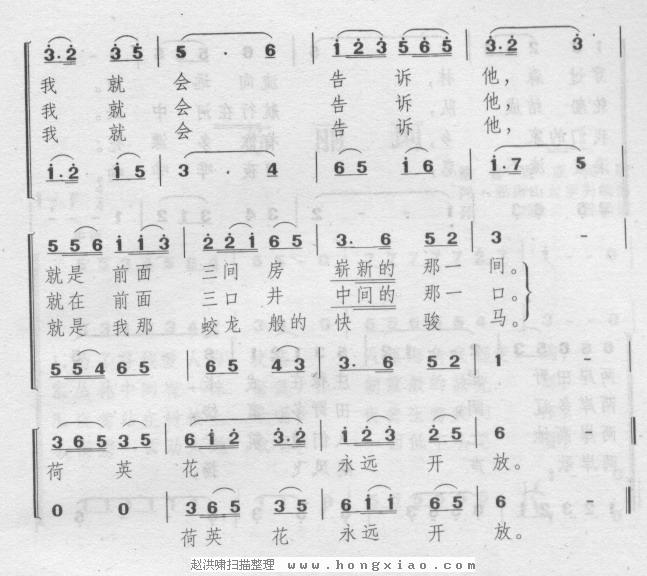 3·2 3 5 | 5 · 6 | 1 2 3 5 6 5 | 3·2 3 |
我 就 会 告 诉 他，
我 就 会 告 诉 他，
我 就 会 告 诉 他，
1·2 1 5 | 3 · 4 | 6 5 1 6 | 1·7 5 |
5 5 6 1 1 3 | 2 2 1 6 5 | 3· 6 5 2 | 3 - |
就是 前面 三间 房 崭新的 那一 间。
就在 前面 三口 井 中间的 那一 口。
就是 我那 蛟龙 般的 快 骏 马。
5 5 4 6 5 | 6 5 4 3 | 3· 6 5 2 | 1 - |
3 6 5 3 5 | 6 1 2 3·2 | 1 2 3 2 5 | 6 - ‖
荷 英 花 永远 开 放。
0 0 | 3 6 5 3 5 | 6 1 1 6 5 | 6 - ‖
荷英 花 永远 开 放。
赵洪啸扫描整理 www.hongxiao.com